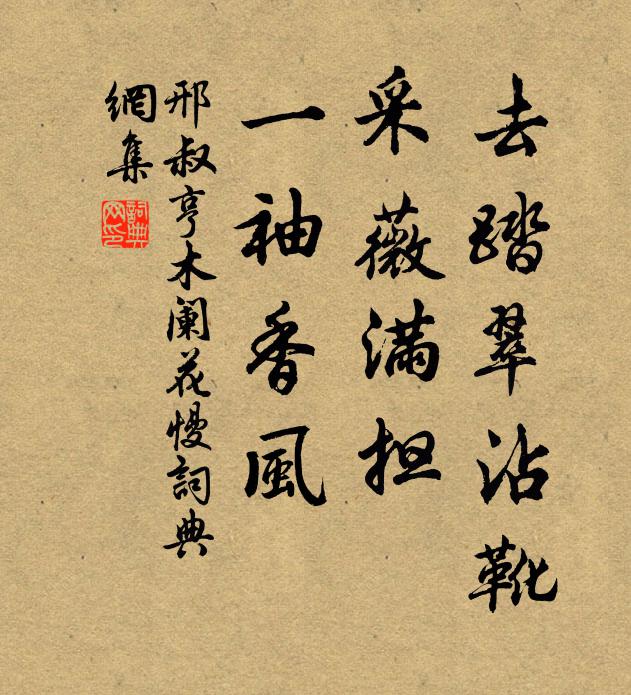 去踏翠沾靴
采薇满担
一袖香風
邢叔亨木阑花慢詞典
網集
詞典
网印